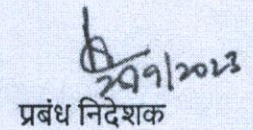 29/9/2023
प्रबंध निदेशक